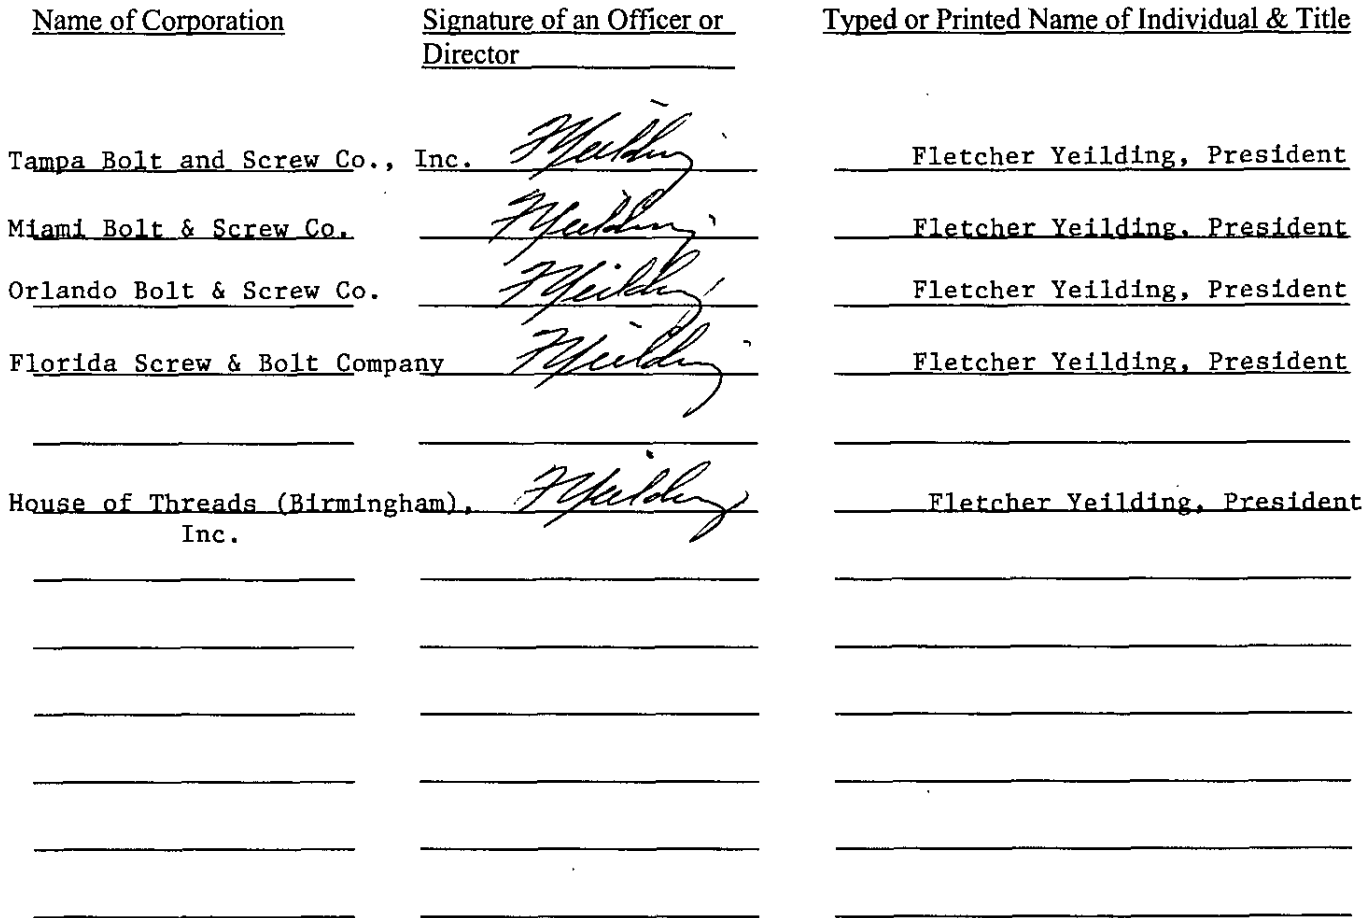 Name of Corporation Signature of an Officer or Director Typed or Printed Name of Individual & Title
Tampa Bolt and Screw Co., Inc. FYeilding Fletcher Yeilding, President
Miami Bolt & Screw Co. FYeilding Fletcher Yeilding, President
Orlando Bolt & Screw Co. FYeilding Fletcher Yeilding, President
Florida Screw & Bolt Company FYeilding Fletcher Yeilding, President
House of Threads (Birmingham), Inc. FYeilding Fletcher Yeilding, President